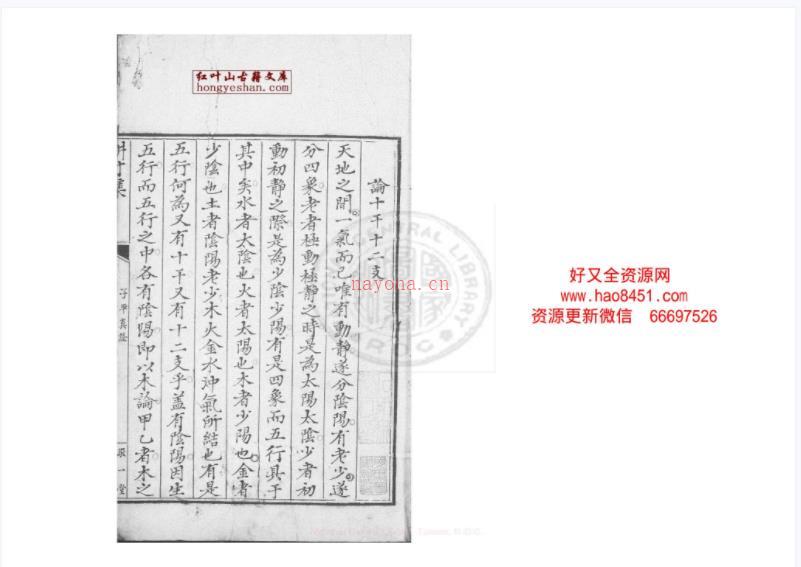 红叶山古籍文库
hongyeshan.com
論十干十二支
天地之間一氣而已唯有動靜遂分陰陽有老少遂
分四象老者極動極靜之時是為太陽太陰少者初
動初靜之際是為少陰少陽有是四象而五行具于
其中矣水者太陰也火者太陽也木者少陽也金者
少陰也土者陰陽老少木火金水沖氣所結也有是
五行何為又有十干又有十二支乎蓋有陰陽因生
五行而五行之中各有陰陽即以木論甲乙者木之
子平真詮
nayona.cn
CENTRAL LIBRARY
好又全资源网
www.hao8451.com
资源更新微信 66697526